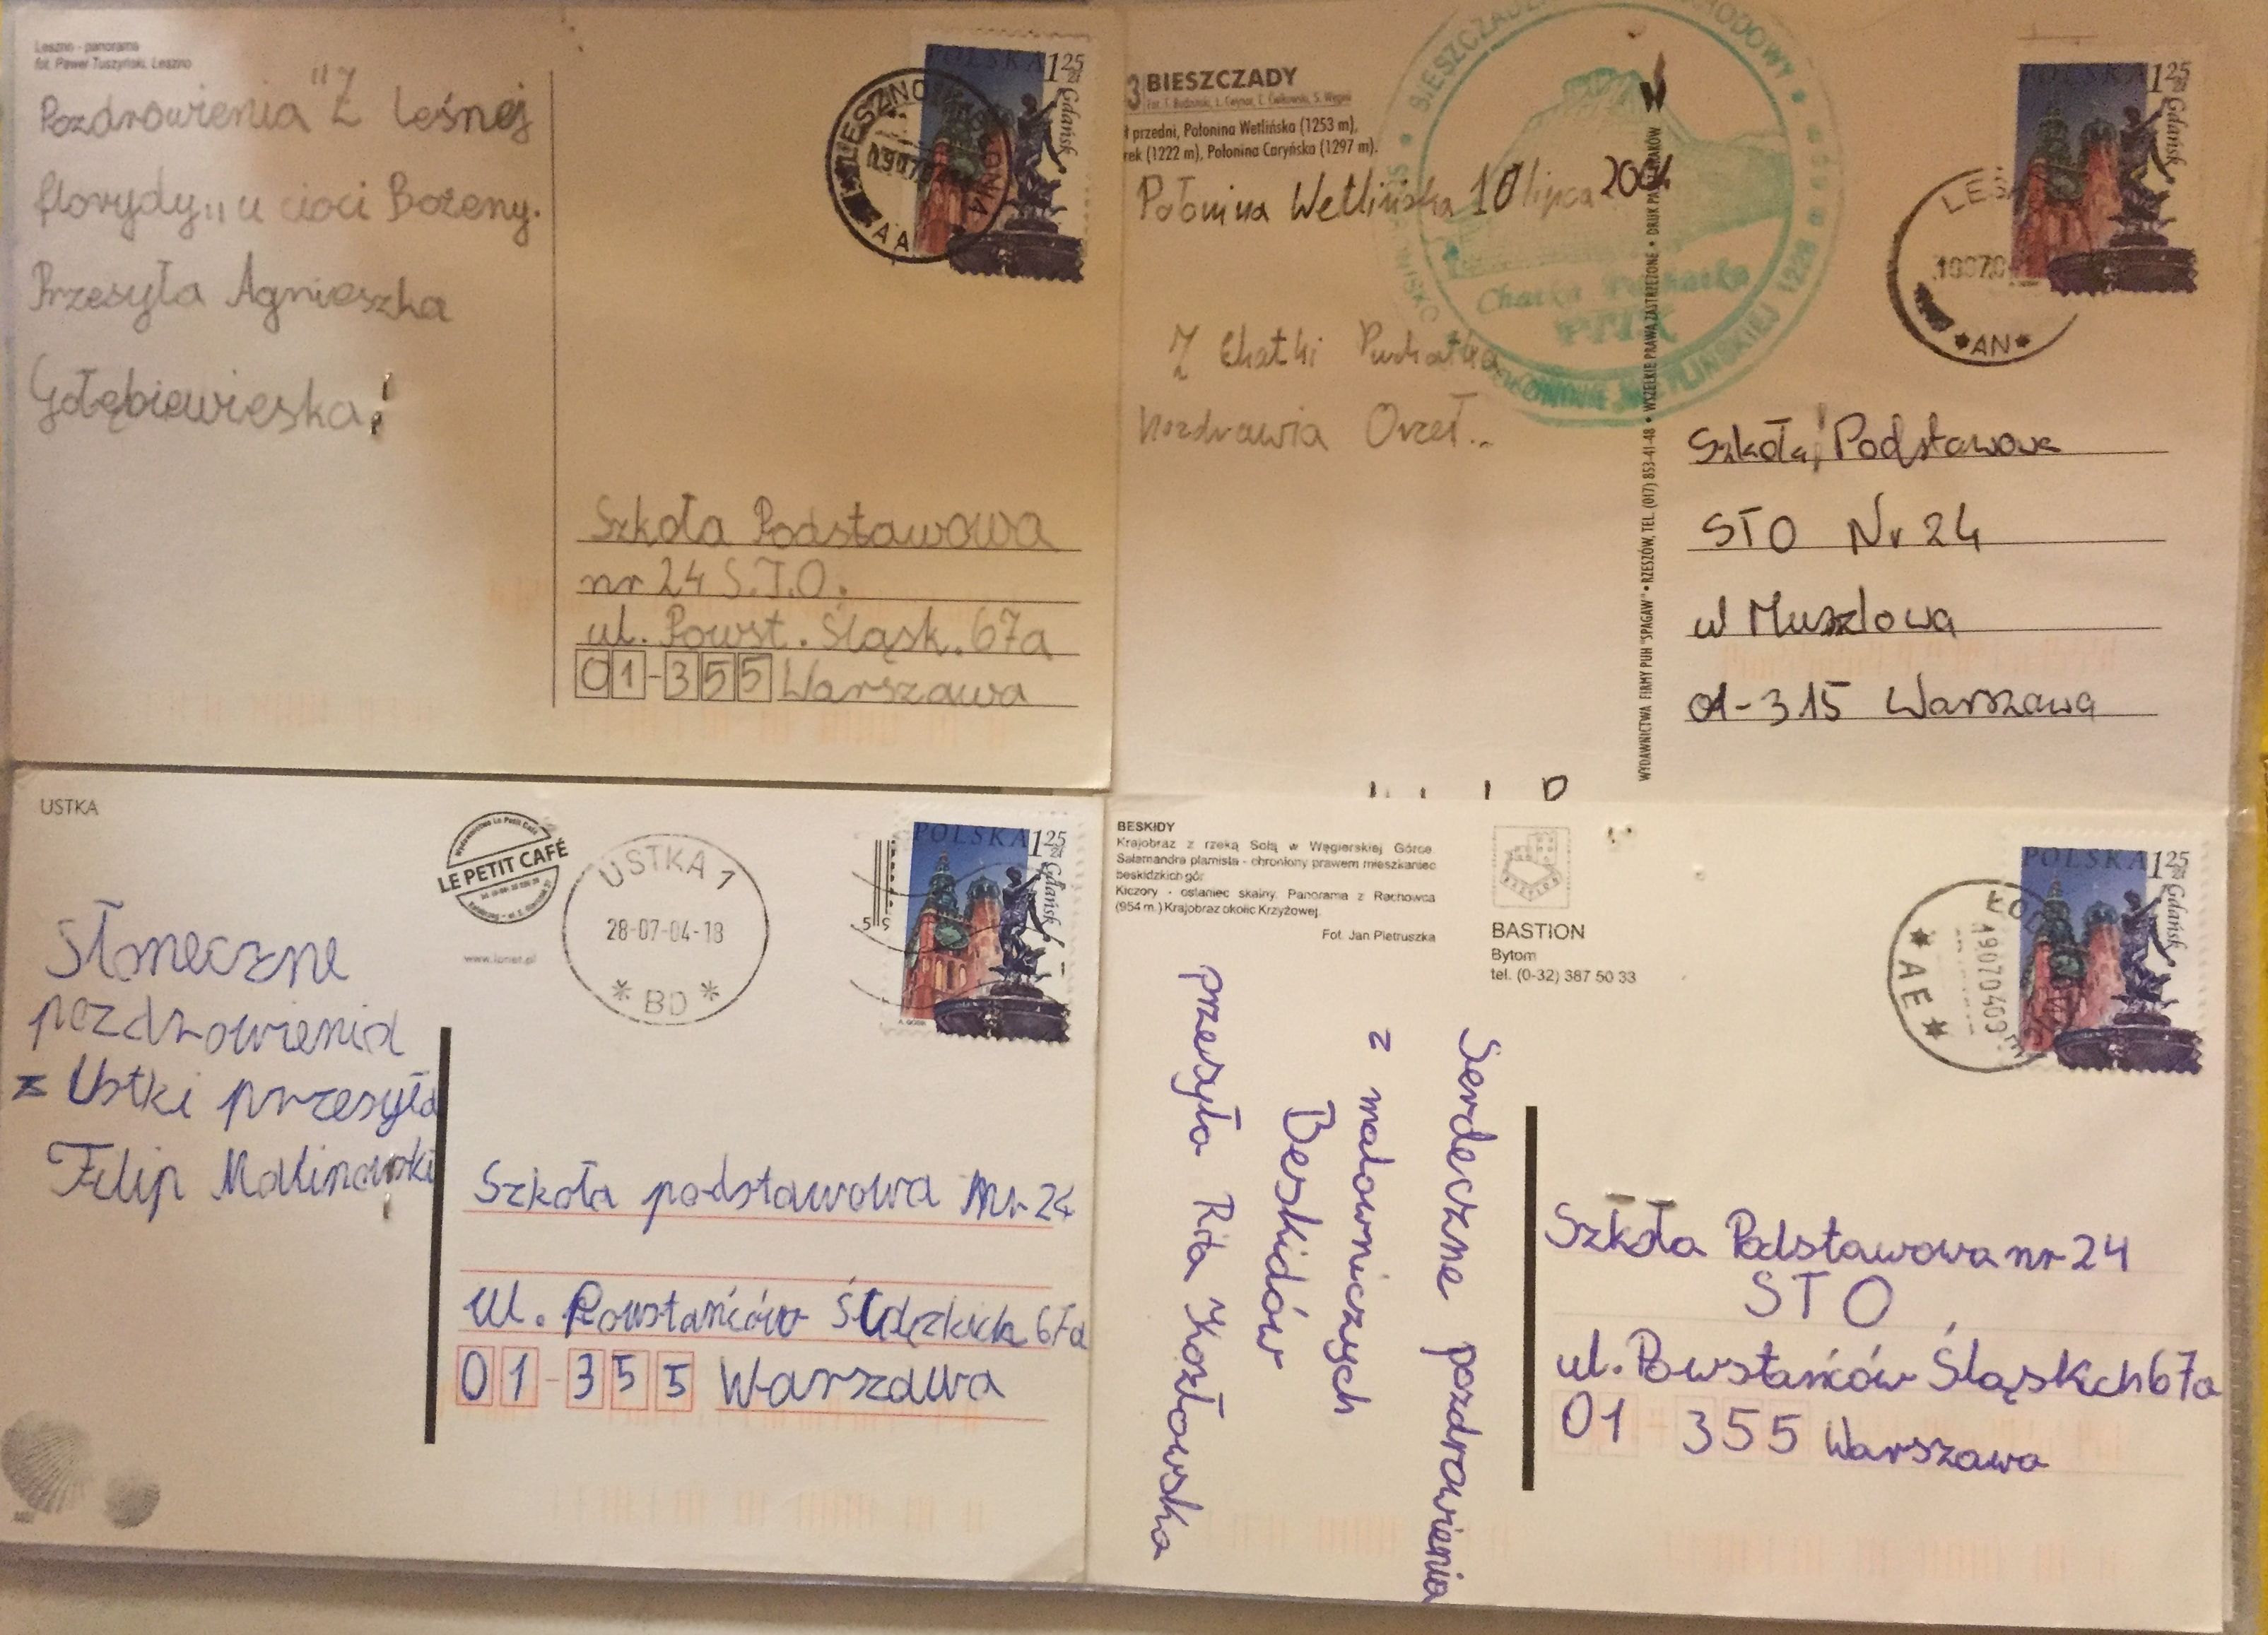 Leszno - panorama
fot. Paweł Tuszyński, Leszno
Pozdrowienia "Z Leśnej
florydy,, u cioci Bożeny.
Przesyła Agnieszka
Gołębiewieska
POLSKA 1 25 zł
Gdańsk
LESZNO
AA
Szkoła Podstawowa
nr 24 S.T.O.
ul. Powst. Śląsk. 67a
01-355 Warszawa
3 BIESZCZADY
przedni, Połonina Wetlińska (1253 m),
rek (1222 m), Połonina Caryńska (1297 m).
Połonina Wetlińska 10 lipca 2004
Z Chatki Puchatka
Pozdrawia Orzeł..
Chatka Puchatka
PTTK
POŁONINIE WETLIŃSKIEJ 1228
WYDAWNICTWA FIRMY PUH "SPAGAW" • RZESZÓW, TEL. (017) 853-41-48 • WSZELKIE PRAWA ZASTRZEŻONE • DRUK KRAKÓW
POLSKA 1 25 zł
Gdańsk
*AN*
Szkoła Podstawowa
STO Nr 24
ul Muszlowa
01-315 Warszawa
USTKA
LE PETIT CAFÉ
USTKA 1
28-07-04-18
* BD *
POLSKA 1 25 zł
Gdańsk
Słoneczne
pozdrowienia
z Ustki przesyła
Filip Malinowski
Szkoła podstawowa Nr 24
ul. Powstańców Śląskich 67a
01-355 Warszawa
BESKIDY
Krajobraz z rzeką Sołą w Węgierskiej Górce.
Salamandra plamista - chroniony prawem mieszkaniec
beskidzkich gór.
Kiczory - ostaniec skalny. Panorama z Rachowca
(954 m.) Krajobraz okolic Krzyżowej.
Fot. Jan Pietruszka
BASTION
Bytom
tel. (0-32) 387 50 33
POLSKA 1 25 zł
Gdańsk
* AE *
19070409
Serdeczne pozdrowienia
z malowniczych
Beskidów
przesyła Rita Kozłowska
Szkoła Podstawowa nr 24
STO
ul. Powstańców Śląskich 67a
01 355 Warszawa